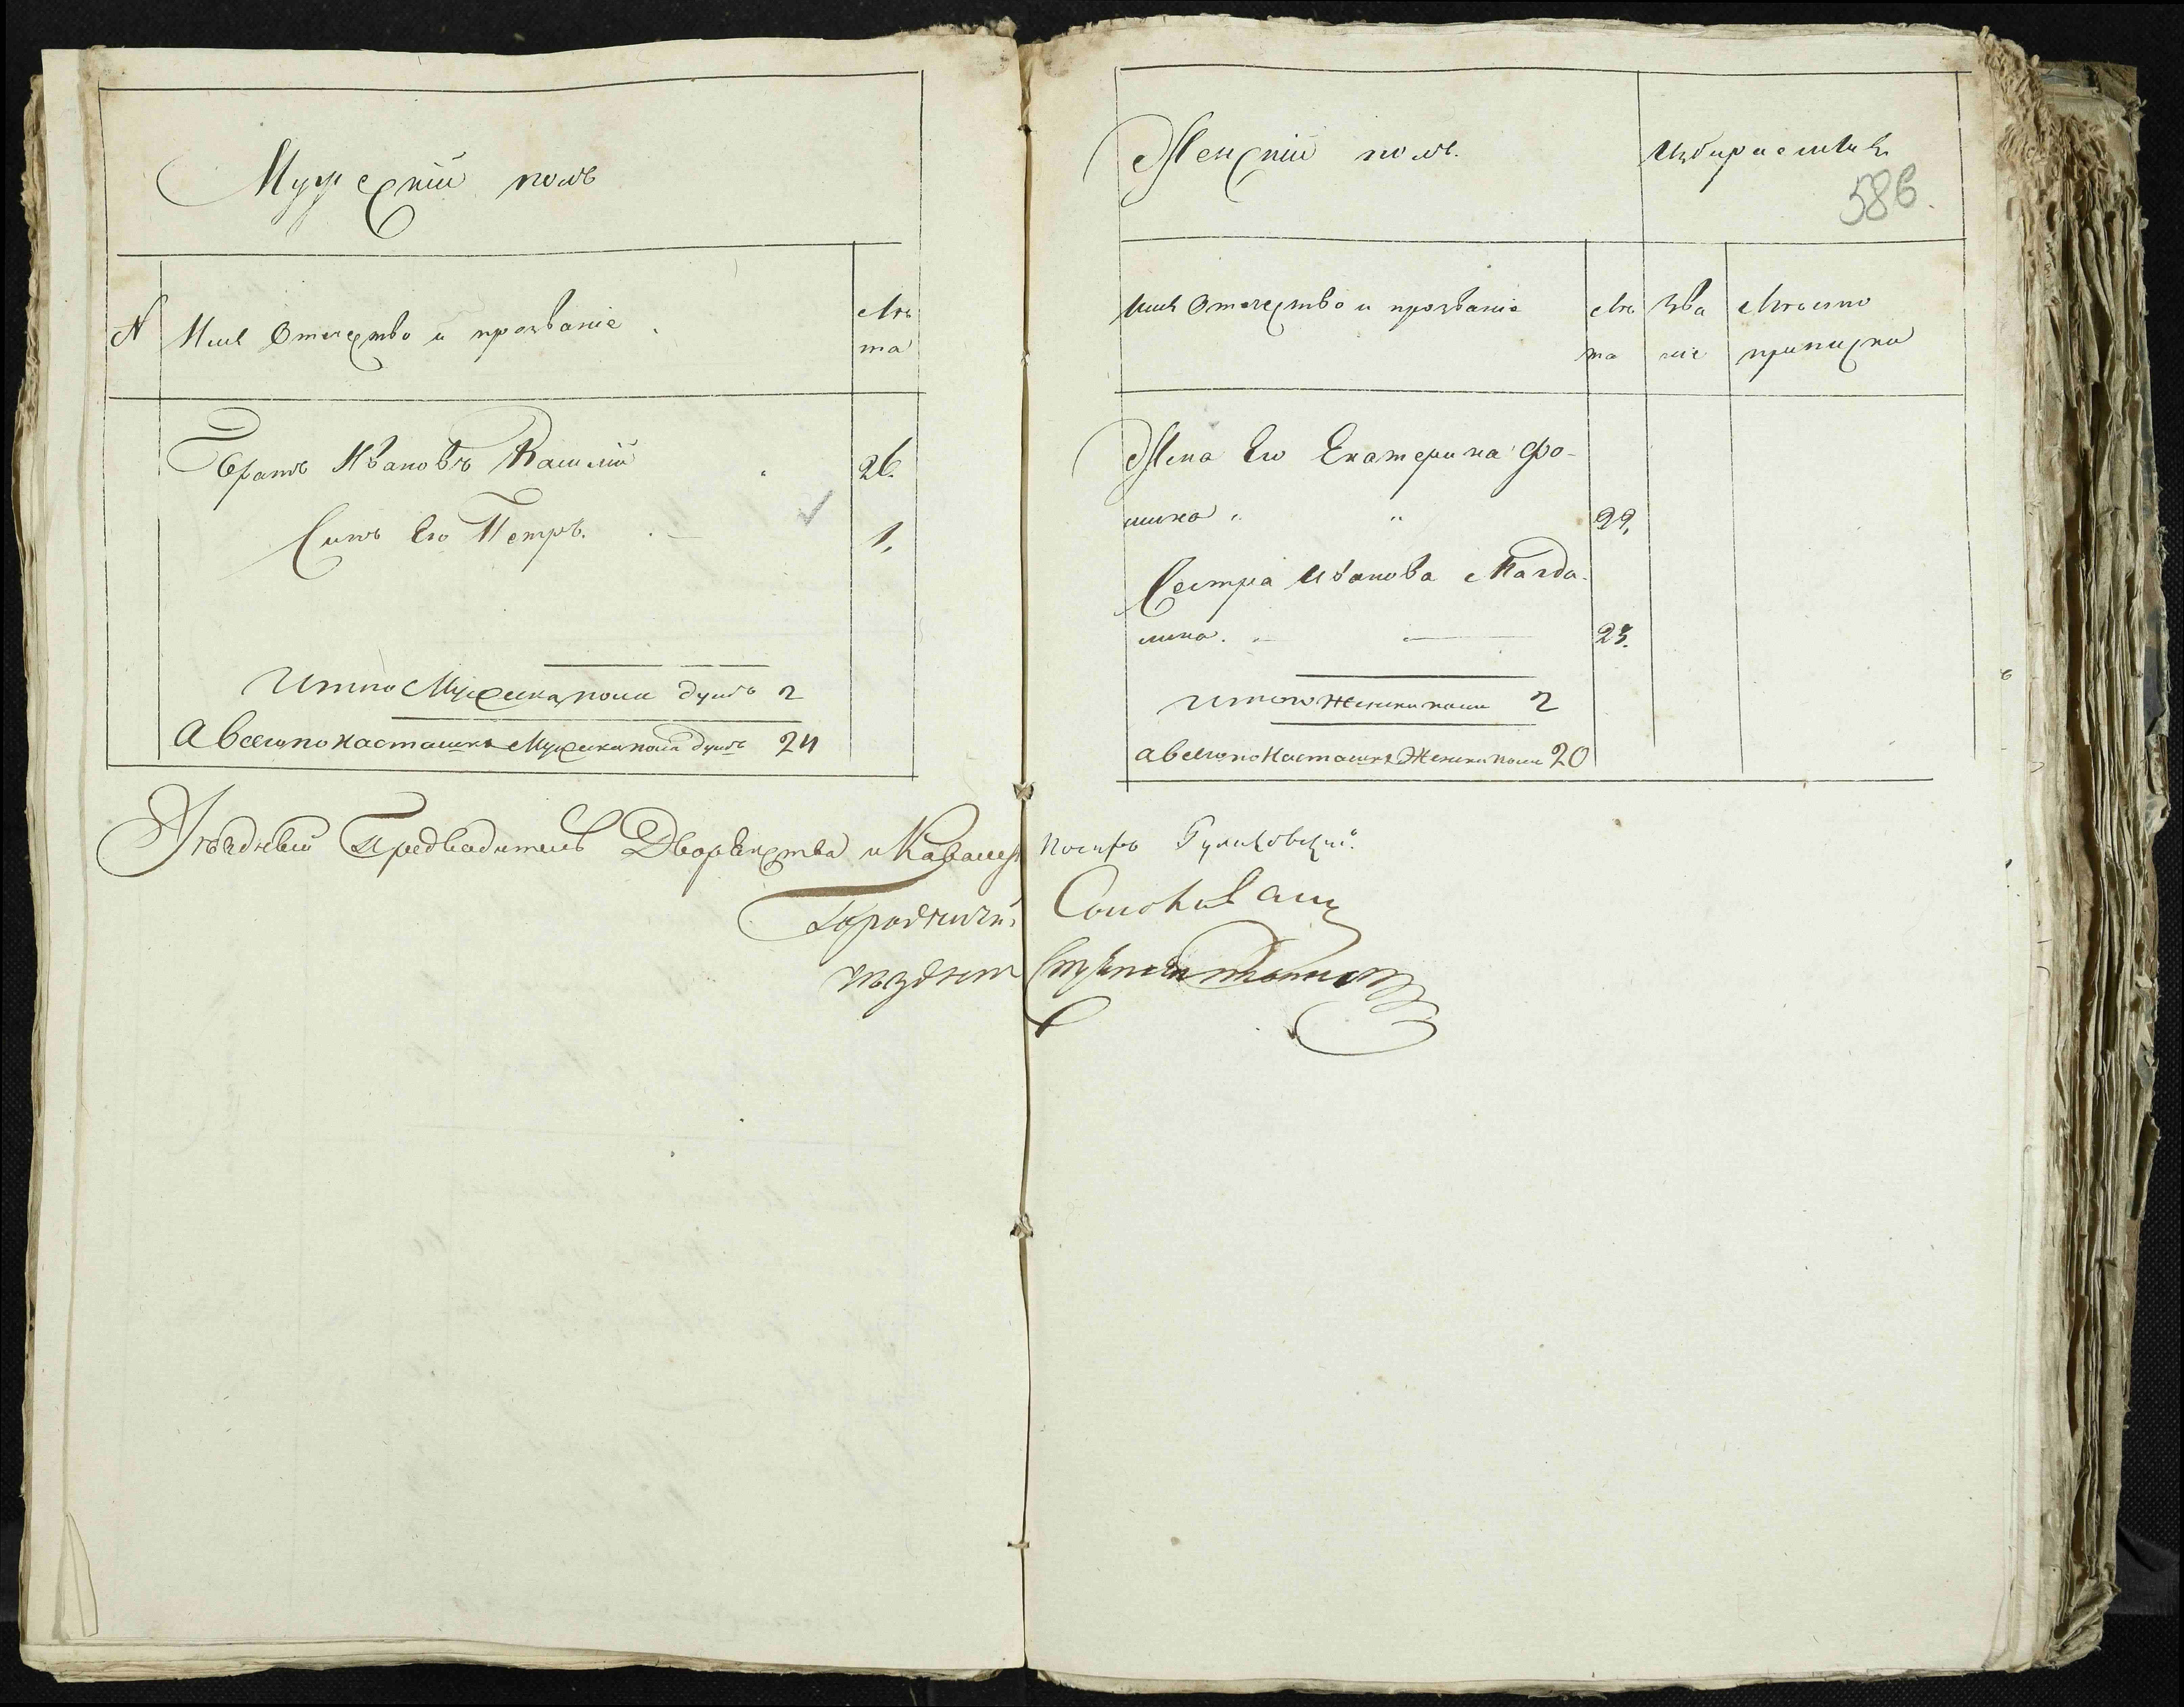 Мужескій полъ
N Имя Отечество и прозваніе
лѣ
та
Братъ Ивановъ Камилій 26.
Сынъ Его Петръ. 1.
Итого Мужеска пола душъ 2
А всего по настоящее Мужеска пола душъ 24
Женскій полъ.
Избираемый
586.
Имя Отечество и прозваніе
лѣ
та
Зва
ніе
Мѣсто
приписки
Жена Его Екатерина Фо-
мина 22,
Сестра Иванова Магда-
лина. 23.
Итого Женска пола 2
А всего по настоящее Женска пола 20
Уѣздный Предводитель Дворянства и Кавалеръ Іосифъ Гулковскій.
Городничій
уѣздный Стряпчій